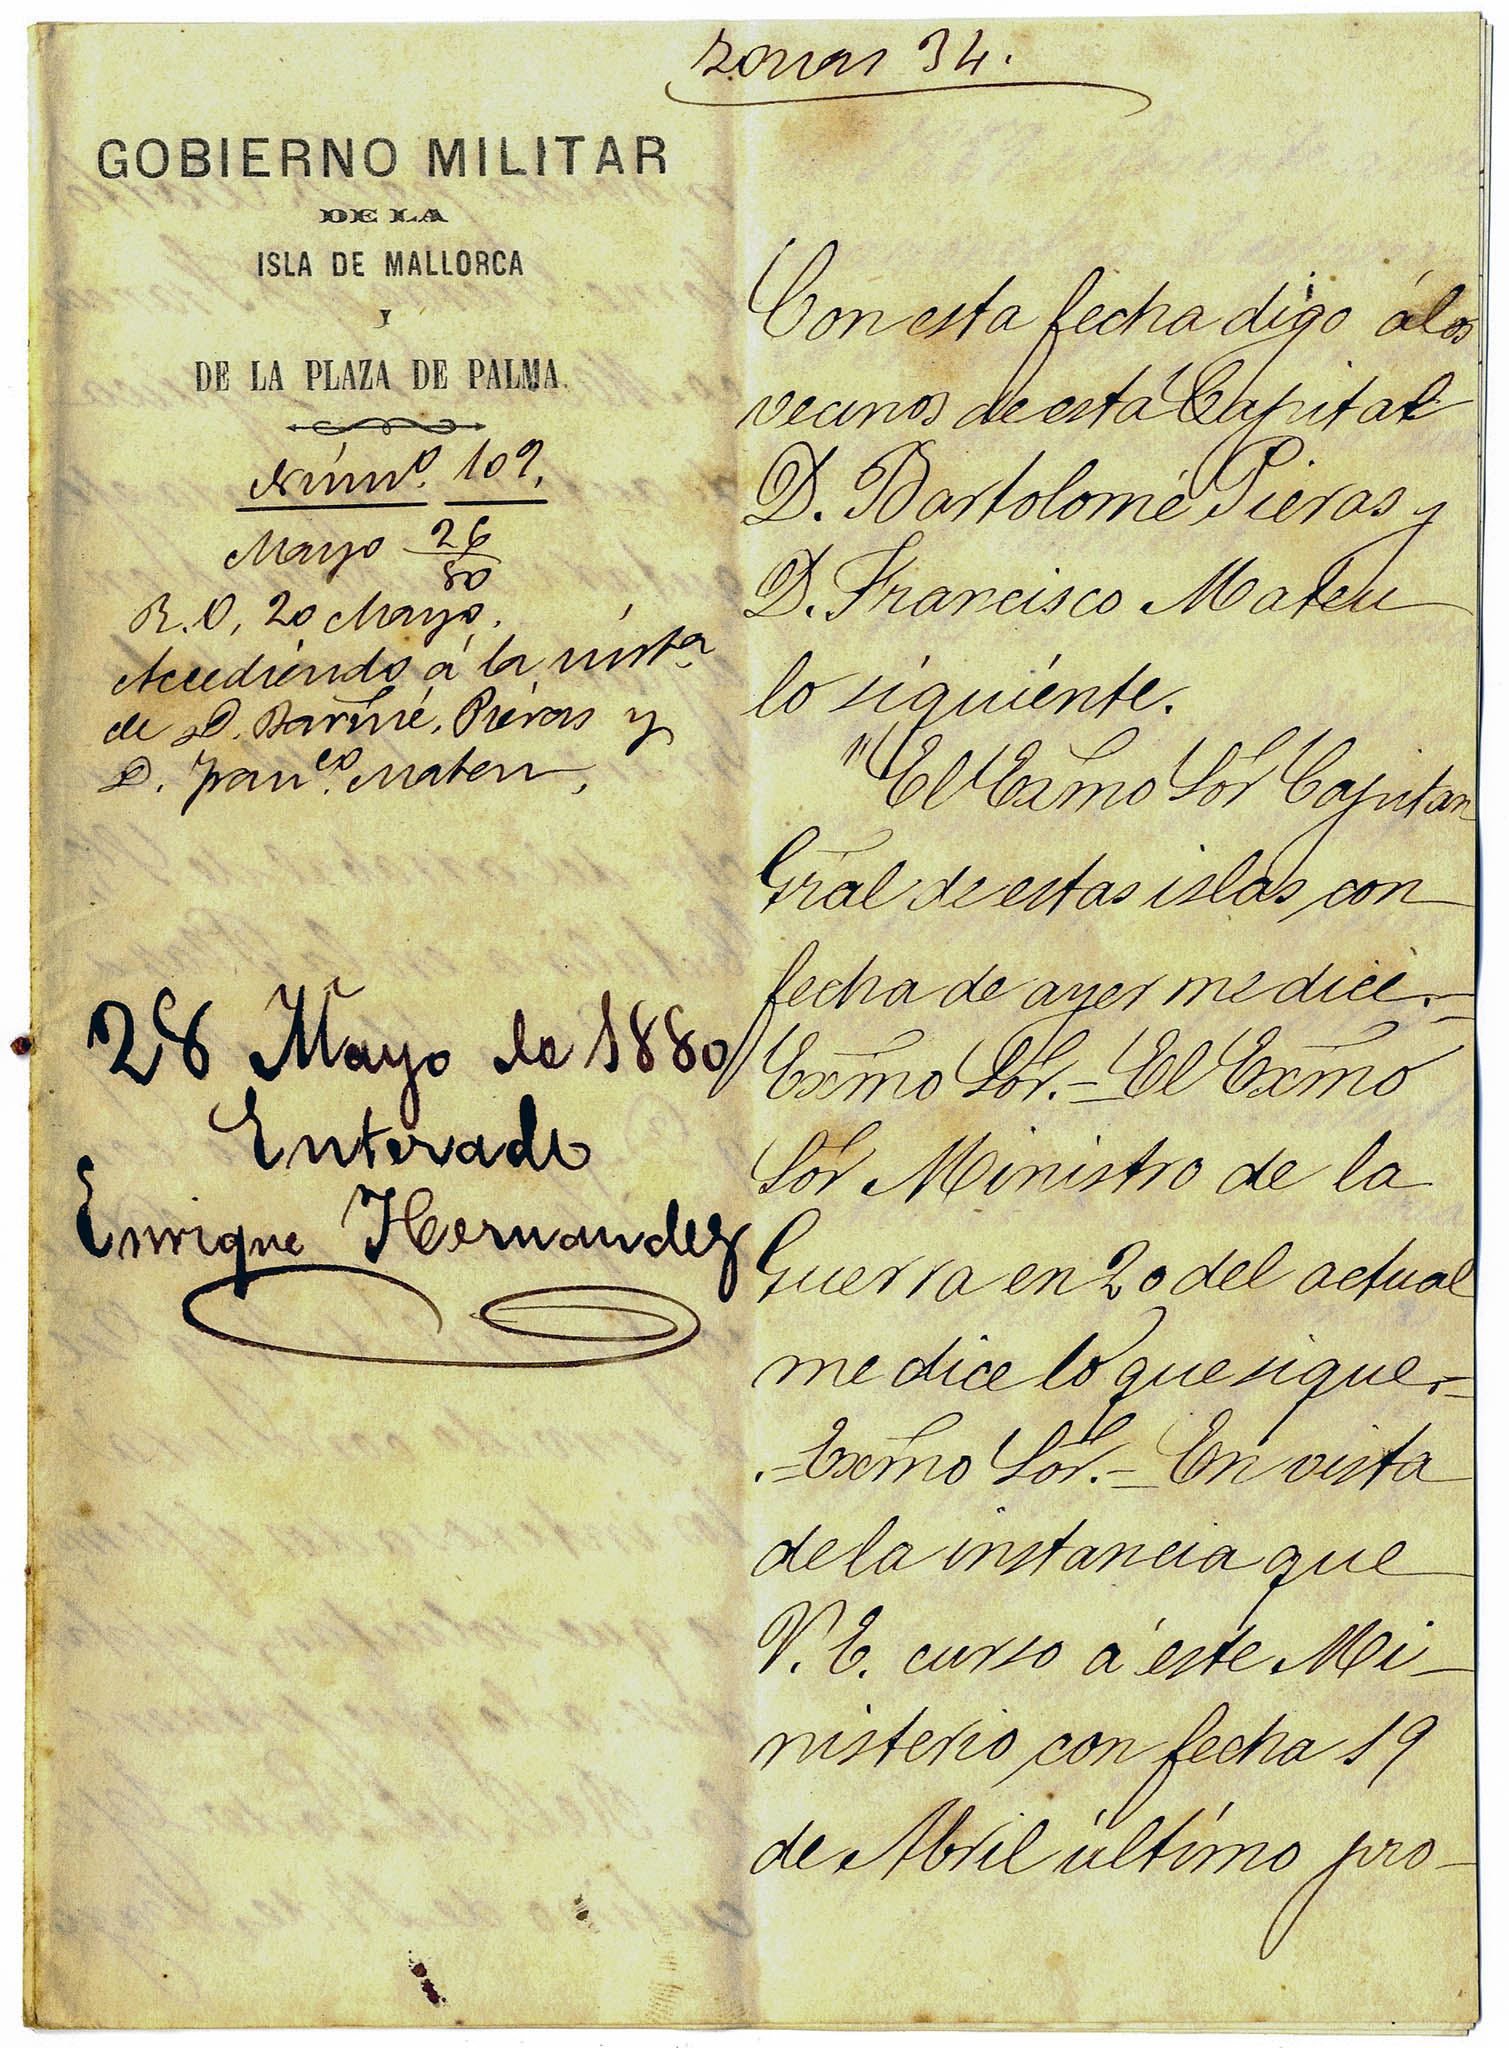 zonas 34.
GOBIERNO MILITAR
DE LA
ISLA DE MALLORCA
Y
DE LA PLAZA DE PALMA.
Númº. 109.
Mayo 26
80
R.O, 20 Mayo.
Accediendo á la insta
de D. Barmé. Pieras y
D. Franco. Mateu,
28 Mayo de 1880
Enterado
Enrique Hernandez
Con esta fecha digo á los
vecinos de esta Capital
D. Bartolomé Pieras y
D. Francisco Mateu
lo siguiente.
"El Exmo Sor Capitan
Gral de estas islas con
fecha de ayer me dice.=
Exmo Sor.= El Exmo
Sor Ministro de la
Guerra en 20 del actual
me dice lo que sigue.=
.=Exmo Sor.= En vista
de la instancia que
V.E. curso á este Mi-
nisterio con fecha 19
de Abril último pro-